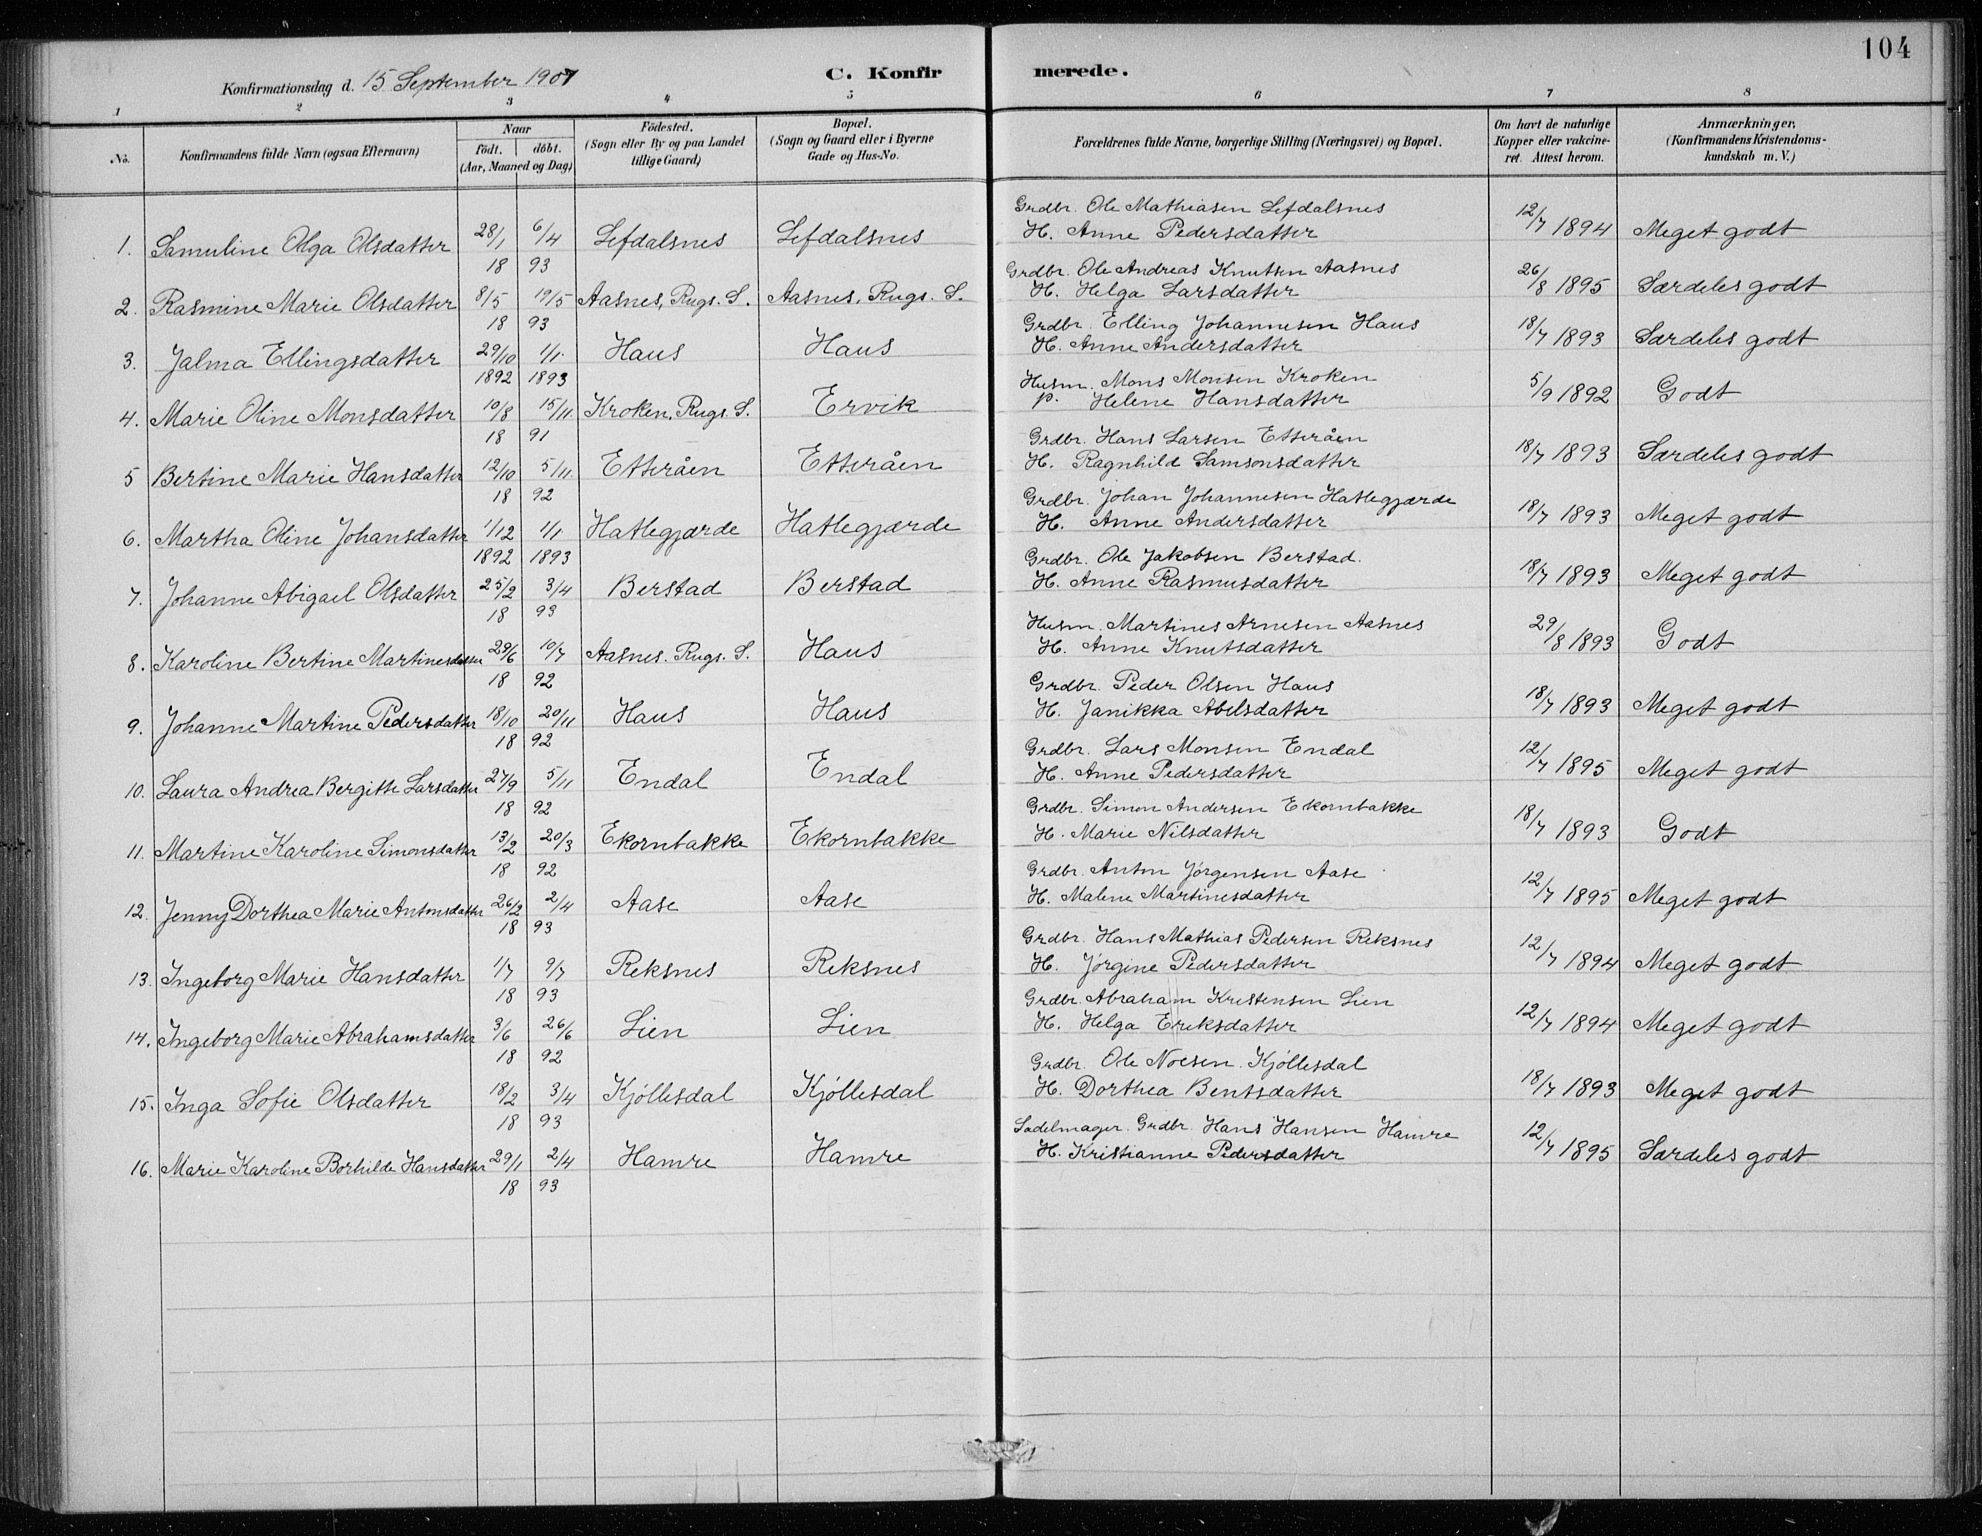 104
Konfirmationsdag d. 15 September 1907
C. Konfirmerede.
1 2 3 4 5 6 7 8
No. Konfirmandens fulde Navn (ogsaa Efternavn) Naar födt. döbt. (Aar, Maaned og Dag) Födested. (Sogn eller By og paa Landet tillige Gaard) Bopæl. (Sogn og Gaard eller i Byerne Gade og Hus-No. Forældrenes fulde Navne, borgerlige Stilling (Næringsvei) og Bopæl. Om havt de naturlige Kopper eller vakcineret. Attest herom. Anmærkninger, (Konfirmandens Kristendomskundskab m. V.)
Grdbr. Ole Mathiasen Lefdalsnes
1. Samuline Olga Olsdatter 28/1 6/4 Lefdalsnes Lefdalsnes H. Anne Pedersdatter 12/7 1894 Meget godt
18 93
Grdbr. Ole Andreas Knutsen Aasnes
2. Rasmine Marie Olsdatter 8/5 19/5 Aasnes, Rugs. S. Aasnes, Rugs. S. H. Helga Larsdatter 26/8 1895 Særdeles godt
18 93
Grdbr. Elling Johannesen Haus
3. Jalma Ellingsdatter 29/10 1/1 Haus Haus H. Anne Andersdatter 18/7 1893 Særdeles godt
1892 1893
Husm. Mons Monsen Kroken
4. Marie Oline Monsdatter 10/8 15/11 Kroken, Rugs. S. Ervik P. Helene Hansdatter 5/9 1892 Godt
18 91
Grdbr. Hans Larsen Etteråen
5 Bertine Marie Hansdatter 12/10 5/11 Etteråen Etteråen H. Ragnhild Samsonsdatter 18/7 1893 Særdeles godt
18 92
Grdbr. Johan Johannesen Hatlegjærde
6. Martha Oline Johansdatter 1/12 1/1 Hatlegjærde Hatlegjærde H. Anne Andersdatter 18/7 1893 Meget godt
1892 1893
Grdbr. Ole Jakobsen Berstad.
7. Johanne Abigael Olsdatter 25/2 3/4 Berstad Berstad H. Anne Rasmusdatter 18/7 1893 Meget godt
18 93
Husm. Martines Arnesen Aasnes
8. Karoline Bertine Martinesdatter 29/6 10/7 Aasnes. Rugs. S. Haus H. Anne Knutsdatter 29/8 1893 Godt
18 92
Grdbr. Peder Olsen Haus
9. Johanne Martine Pedersdatter 18/10 20/11 Haus Haus H. Janikka Abelsdatter 18/7 1893 Meget godt
18 92
Grdbr. Lars Monsen Endal
10. Laura Andrea Bergitte Larsdatter 27/9 5/11 Endal Endal H. Anne Pedersdatter 12/7 1895 Meget godt
18 92
Grdbr. Simon Andersen Ekornbakke
11. Martine Karoline Simonsdatter 13/2 20/3 Ekornbakke Ekornbakke H. Marie Nilsdatter 18/7 1893 Godt
18 92
Grdbr. Anton Jørgensen Aase
12. Jenny Dorthea Marie Antonsdatter 26/2 2/4 Aase Aase H. Malene Martinesdatter 12/7 1895 Meget godt
18 93
Grdbr. Hans Mathias Pedersen Reksnes
13. Ingeborg Marie Hansdatter 1/7 9/7 Reksnes Reksnes H. Jørgine Pedersdatter 12/7 1894 Meget godt
18 93
Grdbr. Abraham Kristensen Lien
14. Ingeborg Marie Abrahamsdatter 3/6 26/6 Lien Lien H. Helga Eriksdatter 12/7 1894 Meget godt
18 92
Grdbr. Ole Noesen Kjøllesdal
15. Inga Sofie Olsdatter 18/2 3/4 Kjøllesdal Kjøllesdal H. Dorthea Bentsdatter 18/7 1893 Meget godt
18 93
Sadelmager. Grdbr. Hans Hansen Hamre
16. Marie Karoline Borhilde Hansdatter 29/1 2/4 Hamre Hamre H. Kristianne Pedersdatter 12/7 1895 Særdeles godt
18 93